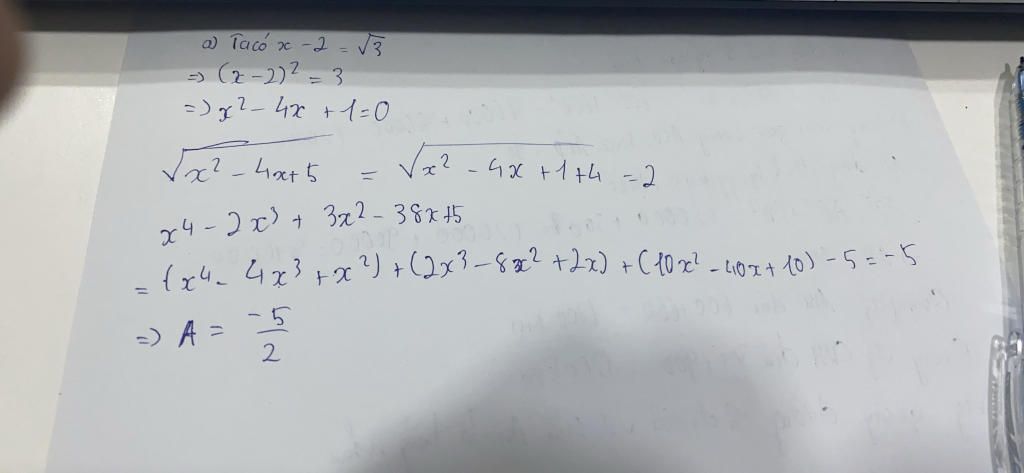 a) Ta có x - 2 = √3
=> (x - 2)² = 3
=> x² - 4x + 1 = 0
√(x² - 4x + 5) = √(x² - 4x + 1 + 4) = 2
x⁴ - 2x³ + 3x² - 38x + 5
= (x⁴ - 4x³ + x²) + (2x³ - 8x² + 2x) + (10x² - 40x + 10) - 5 = -5
=> A = -5/2